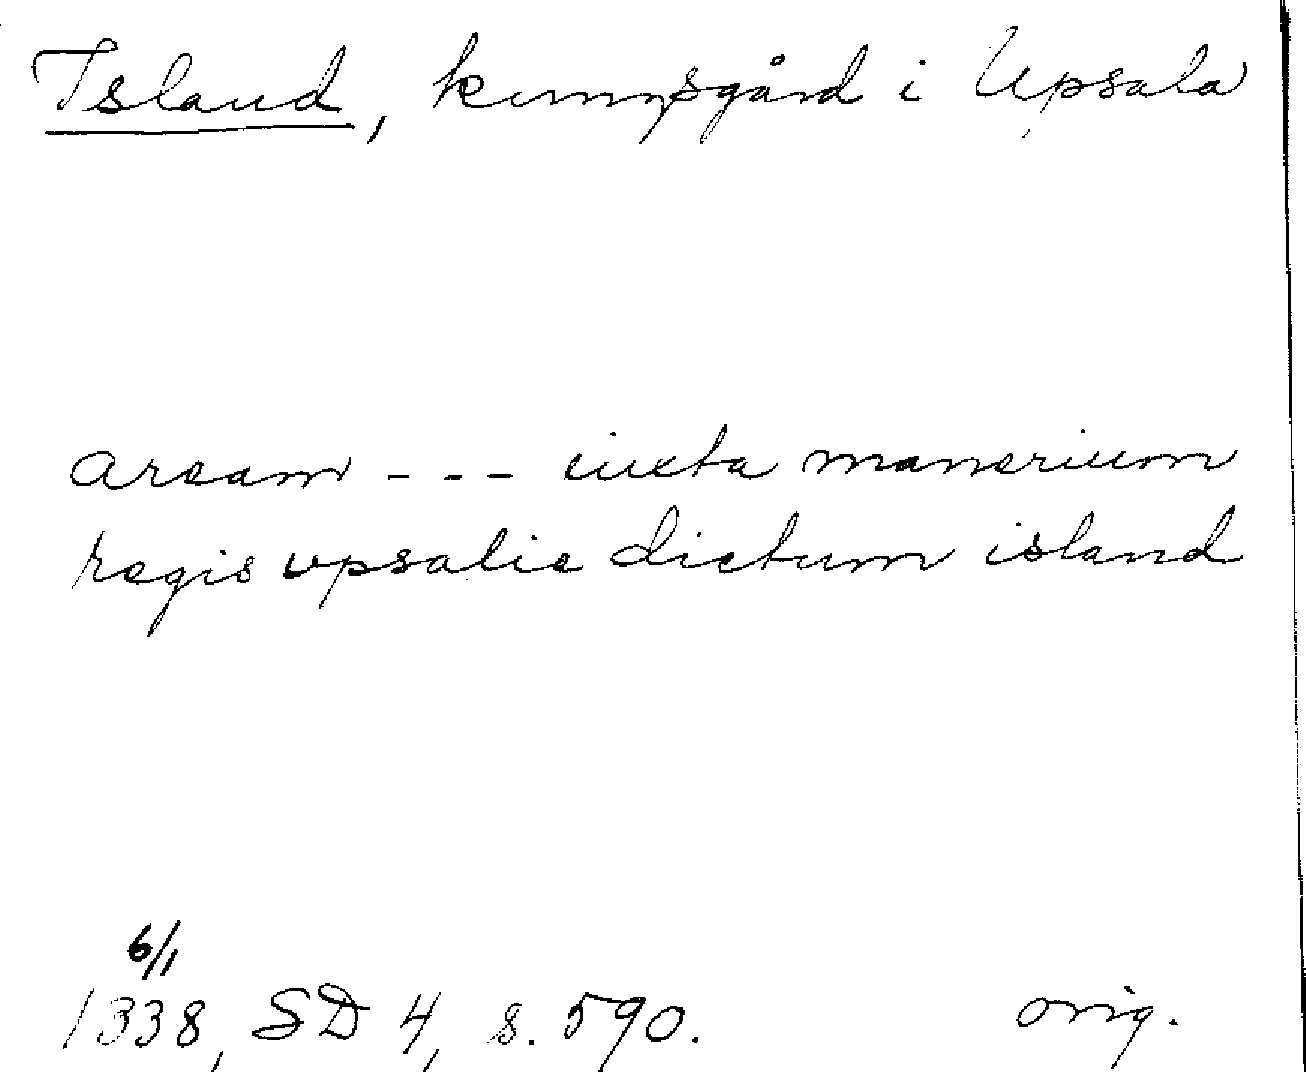 Island, kungsgård i Upsala
aream - - - iuxta manerium
regis vpsalie dictum island
6/1
1338, SD 4, s. 590. orig.